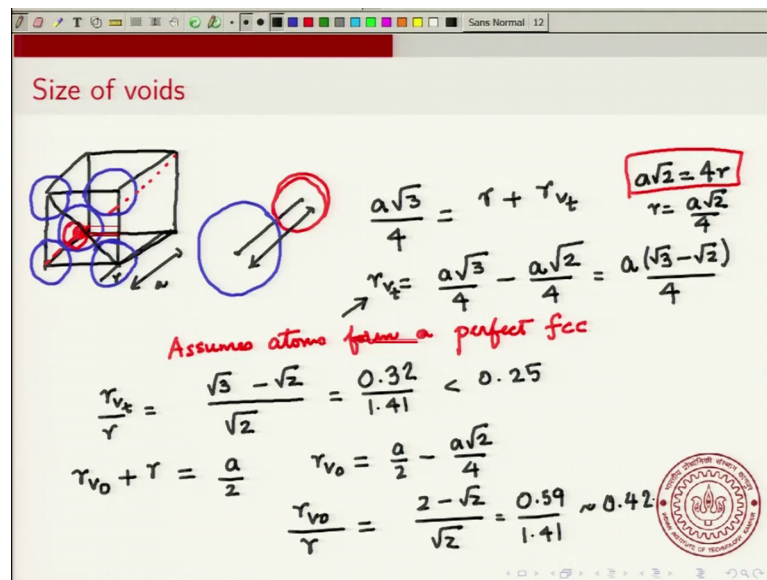 T
Sans Normal 12
Size of voids
r
a
a√3/4 = r + r_vt
a√2 = 4r
r = a√2/4
r_vt = a√3/4 - a√2/4 = a(√3-√2)/4
Assumes atoms form a perfect fcc
r_vt/r = √3 - √2/√2 = 0.32/1.41 < 0.25
r_vo + r = a/2 r_vo = a/2 - a√2/4
r_vo/r = 2 - √2/√2 = 0.59/1.41 ~ 0.42
INDIAN INSTITUTE OF TECHNOLOGY KANPUR